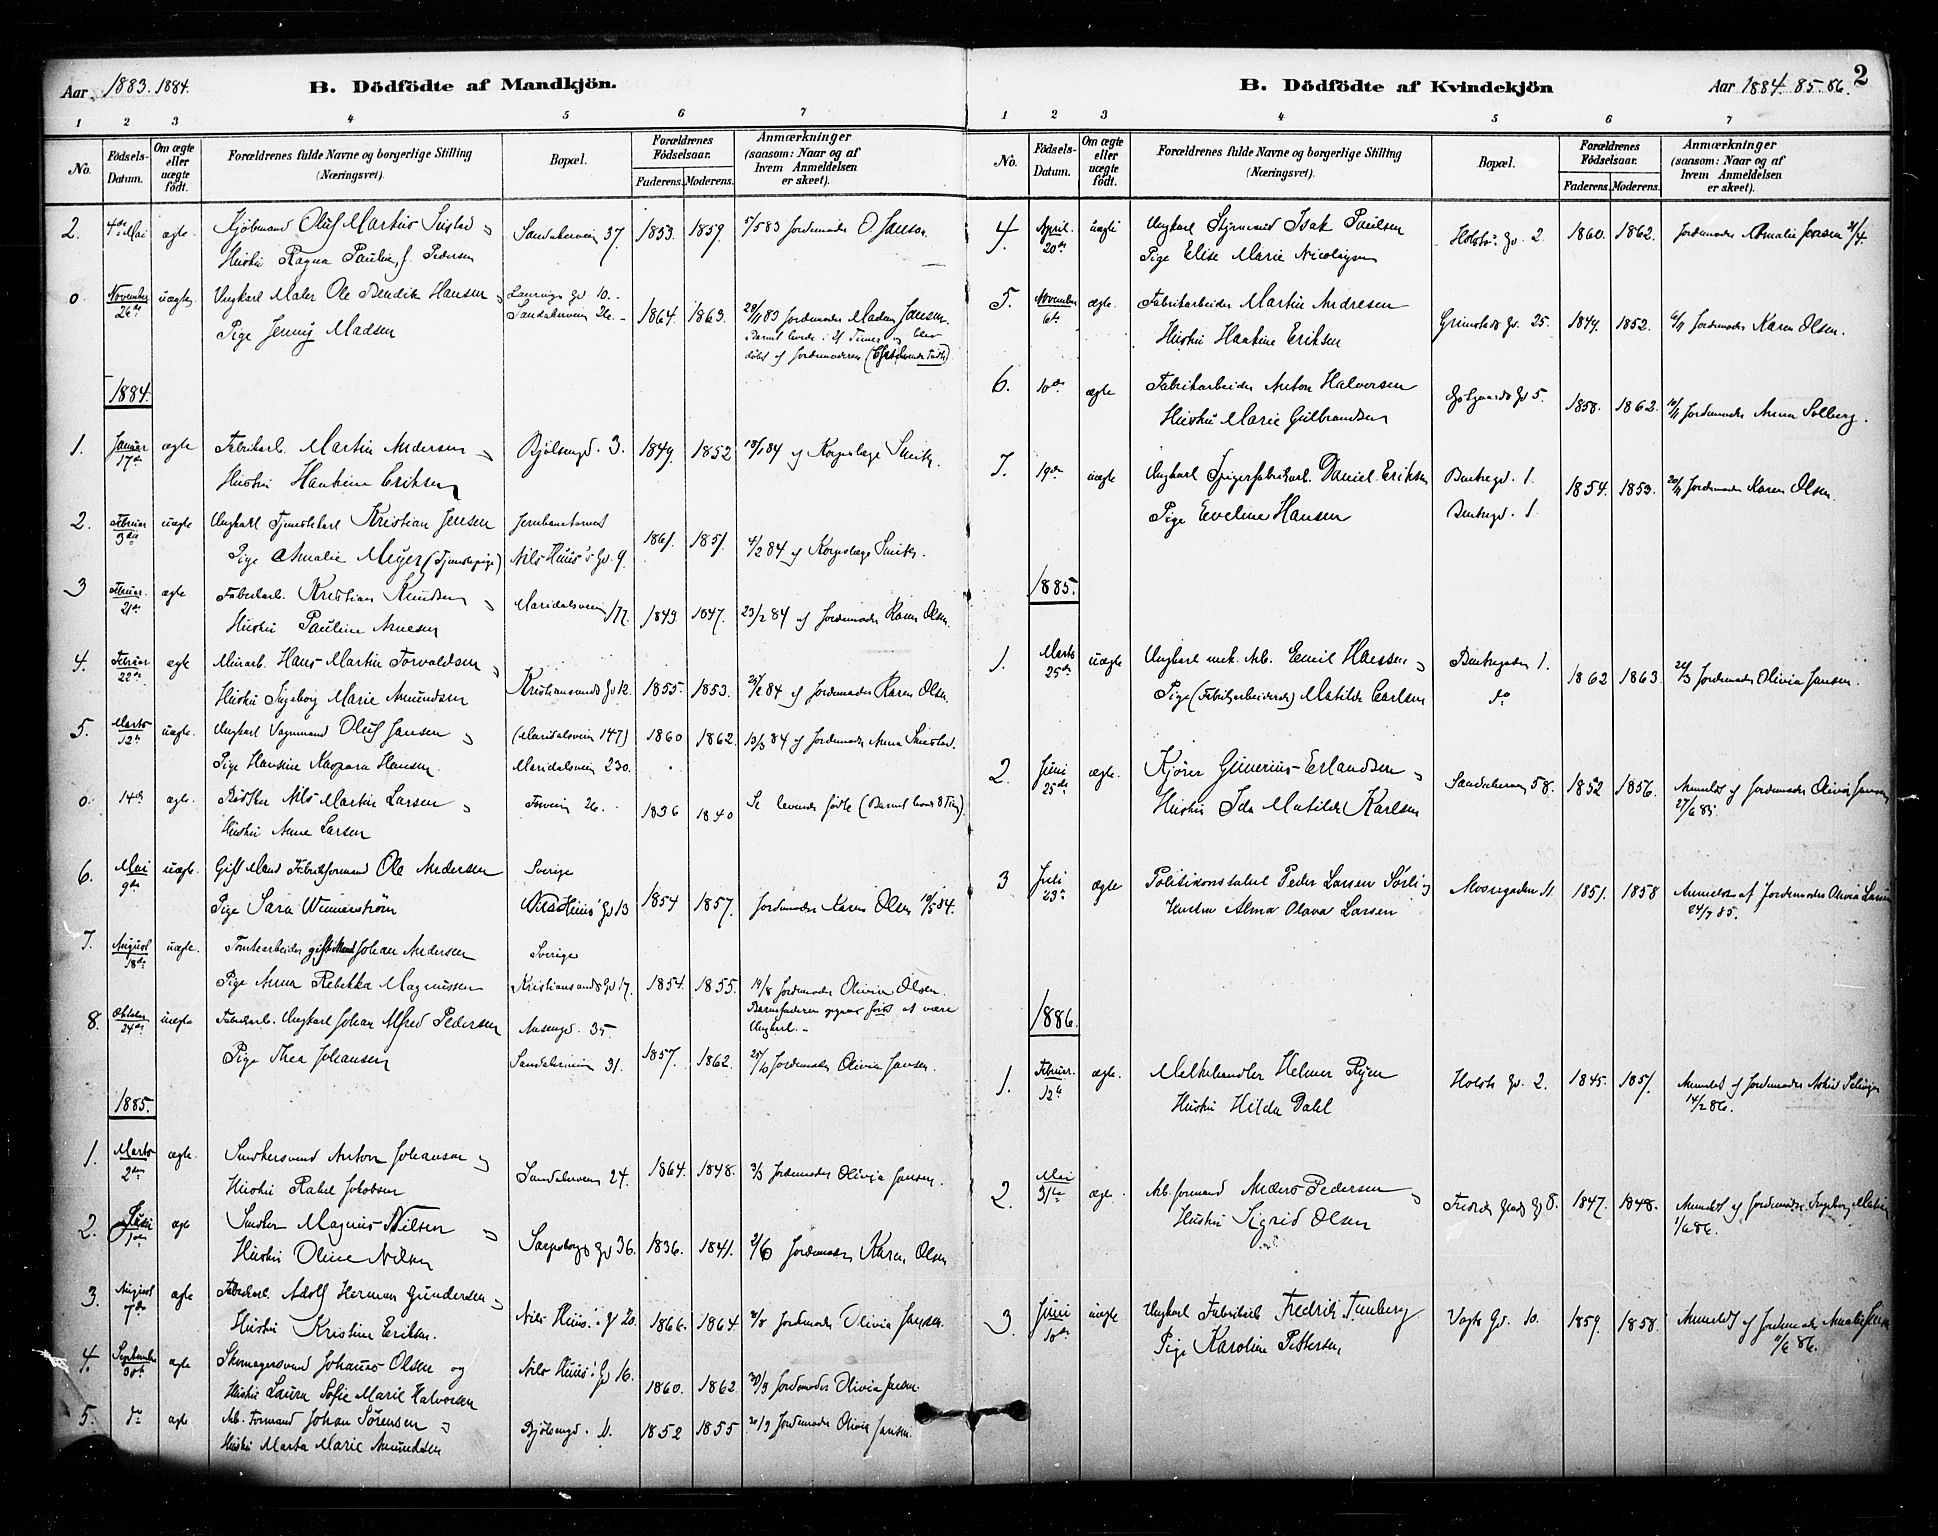 Aar 1883. 1884.
B. Dödfödte af Mandkjön.
1 2 3 4 5 6 7
No.
Födsels-Datum.
Om ægte eller uægte födt.
Forældrenes fulde Navne og borgerlige Stilling (Næringsvei).
Bopæl.
Forældrenes Födselsaar.
Faderens. Moderens.
Anmærkninger (saasom: Naar og af hvem Anmeldelsen er skeet).
2. 4de Mai ægte Oluf Martius Sandakerveien 37. 1853. 1859. 5/5 83 Jordemoder O. Jansen
Hustru Ragna Pauline, f. Pedersen
0 November 26de uægte Ungkarl Maler Ole Bendik Hansen Gd. 10.
Pige Jenny Madsen Sandakerveien 26. 1864. 1863. 28/11 83 Jordemoder Madam Jansen.
Barnet levede i Timer og blev
døbt af Jordemoderen
1884.
1. Januar 17de ægte Fabrikarb. Martin Andersen Bjølsengd. 3. 1849. 1852 18/1 84 af Korpslæge
Hustru Hankine Eriksen
2. Februar 3die uægte Ungkarl Tjenestekarl Kristian Jensen Jernbanetorvet
Pige Amalie Meyer (Tjenestepige) Nils Huus's Gd. 9. 1861. 1851. 4/2 84 af Korpslæge
3 Februar 21de ægte Fabrikarb. Kristian Knudsen Maridalsveien 177. 1849. 1847. 23/2 84 af Jordemoder Karen Olsen.
Hustru Pauline Arnesen
4. Februar 22de ægte Murarb. Hans Martin Torvaldsen
Hustru Ingeborg Marie Amundsen Kristiansands Gd 12. 1855. 1853. 84 af Jordemoder Karen Olsen.
5. Marts 12te uægte. Ungkarl Vognmand Oluf Jansen (Maridalsveien 147) 1860 1862. 13/3 84 af Jordemoder Anna
Pige Hankine Kaspara Hansen. Maridalsveien 230.
0. 14de ægte. Nils Martin Larsen 26. 1836 1840 Se levende fødte (Barnet levede 8 Tim).
Hustru Anne Larsen
6. Mai 9de uægte. Gift Mand Fabrikformand Ole Andersen Sverige
Pige Sara Winnerstrøm Nils Huus' Gd 13 1854 1857. Jordemoder Karen Olsen 10/5 84.
7. August 18de uægte. Tomtearbeider gift Mand Johan Andersen Sverige
Pige Anna Rebekka Magnussen Kristiansands Gd 17. 1854. 1855. 19/8 Jordemoder Olivia Olsen.
Barnefaderen opgaves først at være
Ungkarl.
8. Oktober 24de uægte Fabrikarb. Ungkarl Johan Alfred Pedersen Aasengd. 35
Pige Thea Johansen Sandakerveien 31. 1857. 1862. 25/10 Jordemoder Olivia Jansen.
1885.
1. Marts 2den ægte. Smedkersvend Anton Johansen Sandakerveien 24. 1864. 1848. 3/3 Jordemoder Olivia Jansen.
Hustru Rakel Jakobsen
2. Juni 1ste ægte Magnus Nilsen Sarpsborgs Gd 36. 1836. 1841. 2/6 Jordemoder Karen Olsen
Hustru Oline Nilsen
3. August 7de ægte Fabrikarb. Adolf Herman Gundersen Nils Huus' Gd 20. 1866. 1864. 8/8 Jordemoder Olivia Jansen
Hustru Kristine Eriksen.
4. September 30te ægte Skomagersvend Johannes Olsen og Nils Huus' Gd 16. 1860. 1862. 30/9 Jordemoder Olivia Jansen.
Hustru Laura Sofie Marie Halvorsen
5. do ægte Arb. Formand Johan Sørensen Bjølsengd. 11. 1852 1855 Jordemoder Olivia Jansen.
Hustru Marta Marie Amundsen
B. Dödfödte af Kvindekjön
Aar 1884. 85. 86. 2
1 2 3 4 5 6 7
No.
Födsels-Datum.
Om ægte eller uægte födt.
Forældrenes fulde Navne og borgerlige Stilling (Næringsvei).
Bopæl.
Forældrenes Födselsaar.
Faderens. Moderens.
Anmærkninger (saasom: Naar og af hvem Anmeldelsen er skeet).
4. April 20de uægte Ungkarl Styrmand Isak Paulsen Holsts Gd. 2 1860. 1862. Jordemoder Amalie Jensen 21/4
Pige Elise Marie Nicolaysen
5. November 6te ægte. Fabrikarbeider Martin Andresen Grimstads Gd. 25. 1849. 1852. 6/11 Jordemoder Karen Olsen.
Hustru Hankine Eriksen
6. 10de ægte Fabrikarbeider Anton Halvorsen Gd 5. 1858. 1862. 10/11 Jordemoder Anna Solberg.
Hustru Marie Gulbrandsen
7. 19de uægte Ungkarl Spigerfabrikarb. Daniel Eriksen Bentsegd. 1. 1854. 1853. 20/11 Jordemoder Karen Olsen.
Pige Eveline Hansen Bentsegd. 1.
1885.
1. Marts 25de uægte Ungkarl mek. Arb. Emil Hansen Bentsegaden 1. 1862 1863. Jordemoder Olivia Jansen.
Pige (Fabrikarbeiderske) Matilde Carlsen do
2. Juni 25de ægte. Kjører Gunerius Erlandsen Sandakerveien 58. 1852 1856. Anmeldt af Jordemoder Olivia Jansen
Hustru Ida Matilde Karlsen 27/6 85.
3 Juli 23de ægte Politikonstabel Peder Larsen Sørli og Mossegaden 11 1851. 1858 Anmeldt af Jordemoder Olivia Larsen
Hustru Alma Olava Larsen 24/7 85.
1886.
1. Februar 12te ægte. Melkehandler Helmer Ryen Holsts Gd. 2. 1845. 1851. Anmeldt af Jordemoder
Hustru Hilda Dahl 14/2 86.
2. Mai 31te ægte. Arb. formand Anders Pedersen 8. 1847. 1848. Anmeldt af Jordemoder Ingeborg
Hustru Sigrid Olsen 1/6 86.
3. Juni 10de uægte Ungkarl Fabrikarb Fredrik Tomberg Vogts Gd. 10. 1859. 1858. Anmeldt af Jordemoder Amalie Jensen
Pige Karoline Pettersen 11/6 86.